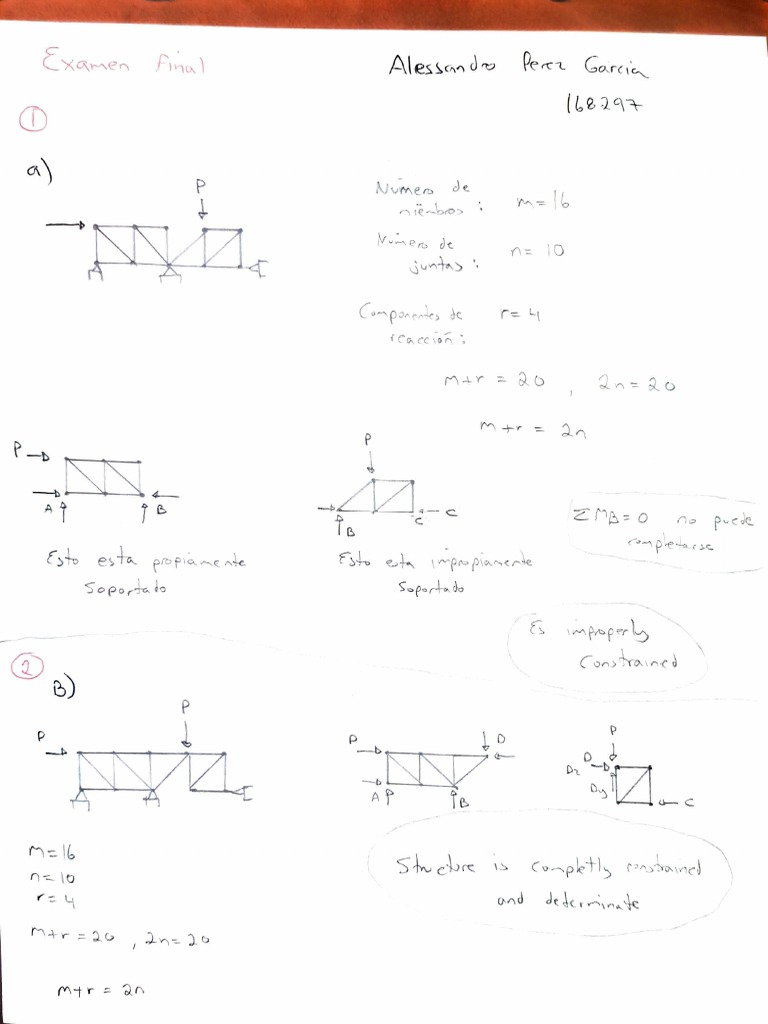 Examen Final
Alessandro Perez Garcia
168297
1
a)
P
Número de
miëmbros : m=16
Número de
juntas : n= 10
Componentes de r= 4
reacción :
m+r = 20 , 2n=20
m+r = 2n
P
A
B
Esto esta propiamente
Soportado
P
B
C
C
Esto esta impropiamente
Soportado
ΣMB=0 no puede
completarse
Es improperly
Constrained
2
B)
P
P
P
D
A
B
P
D
Dx
Dy
C
m=16
n=10
r= 4
m+r = 20 , 2n=20
m+r = 2n
Structure is completly constrained
and determinate